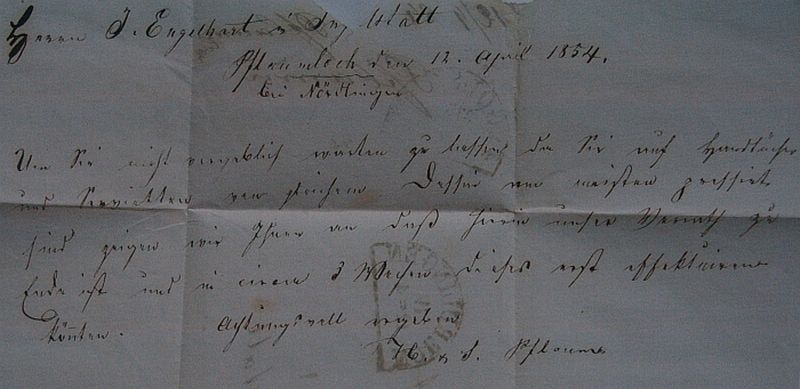 Herrn J. Engelhart in Ingolstatt
Pflaumloch den 12. April 1854.
bei Nördlingen
Um Sie nicht vergeblich warten zu lassen da Sie auf Handtücher
und Servietten von gleichem Dessin am meisten pressirt
sind zeigen wir Ihnen an daß hierin unser Vorrath zu
Ende ist und in circa 3 Wochen dieses erst effektuiren
könnten.
Achtungsvoll ergeben
H. & S. Pflaum